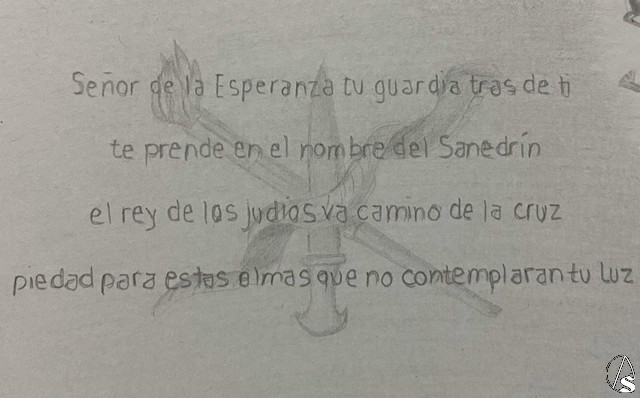 Señor de la Esperanza tu guardia tras de ti
te prende en el nombre del Sanedrín
el rey de los judios va camino de la cruz
piedad para estas almas que no contemplaran tu luz